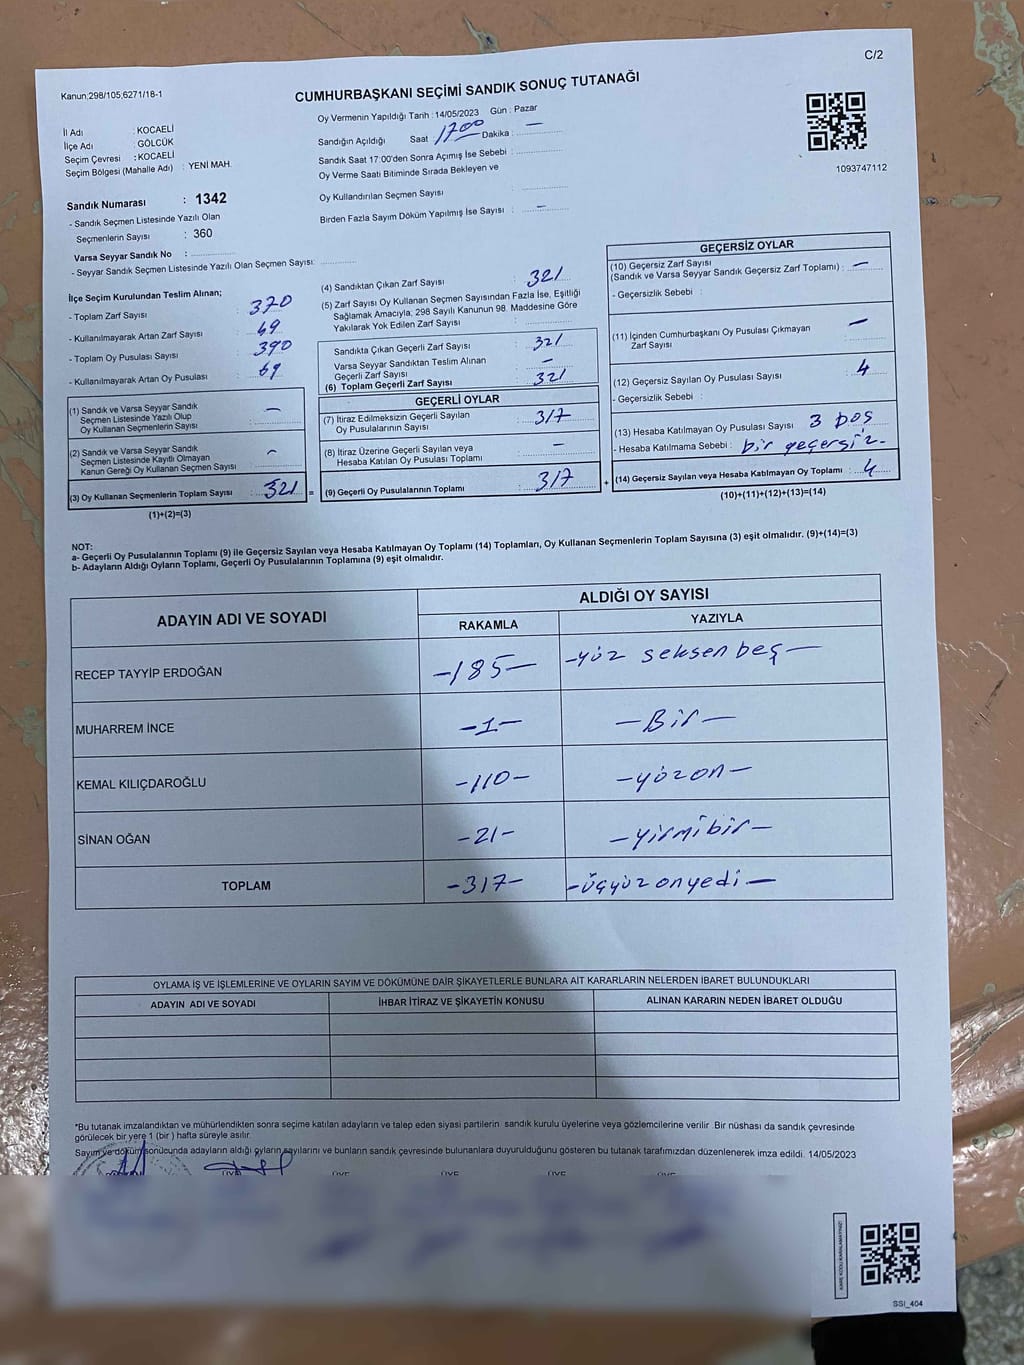 C/2
Kanun;298/105,6271/18-1
CUMHURBAŞKANI SEÇİMİ SANDIK SONUÇ TUTANAĞI
İl Adı : KOCAELİ
İlçe Adı : GÖLCÜK
Seçim Çevresi : KOCAELİ
Seçim Bölgesi (Mahalle Adı) : YENİ MAH.
Oy Vermenin Yapıldığı Tarih : 14/05/2023 Gün : Pazar
Sandığın Açıldığı Saat 1700 Dakika : —
Sandık Saat 17:00'den Sonra Açımış İse Sebebi :
Oy Verme Saati Bitiminde Sırada Bekleyen ve
Oy Kullandırılan Seçmen Sayısı :
Birden Fazla Sayım Döküm Yapılmış İse Sayısı : —
1093747112
Sandık Numarası : 1342
- Sandık Seçmen Listesinde Yazılı Olan
Seçmenlerin Sayısı : 360
Varsa Seyyar Sandık No :
- Seyyar Sandık Seçmen Listesinde Yazılı Olan Seçmen Sayısı:
İlçe Seçim Kurulundan Teslim Alınan;
- Toplam Zarf Sayısı : 370
- Kullanılmayarak Artan Zarf Sayısı : 49
- Toplam Oy Pusulası Sayısı : 390
- Kullanılmayarak Artan Oy Pusulası : 69
(1) Sandık ve Varsa Seyyar Sandık
Seçmen Listesinde Yazılı Olup
Oy Kullanan Seçmenlerin Sayısı : —
(2) Sandık ve Varsa Seyyar Sandık
Seçmen Listesinde Kayıtlı Olmayan
Kanun Gereği Oy Kullanan Seçmen Sayısı : —
(3) Oy Kullanan Seçmenlerin Toplam Sayısı : 321 =
(1)+(2)=(3)
(4) Sandıktan Çıkan Zarf Sayısı : 321
(5) Zarf Sayısı Oy Kullanan Seçmen Sayısından Fazla İse, Eşitliği
Sağlamak Amacıyla, 298 Sayılı Kanunun 98. Maddesine Göre
Yakılarak Yok Edilen Zarf Sayısı :
Sandıkta Çıkan Geçerli Zarf Sayısı : 321
Varsa Seyyar Sandıktan Teslim Alınan
Geçerli Zarf Sayısı : —
(6) Toplam Geçerli Zarf Sayısı : 321
GEÇERLİ OYLAR
(7) İtiraz Edilmeksizin Geçerli Sayılan
Oy Pusulalarının Sayısı : 317
(8) İtiraz Üzerine Geçerli Sayılan veya
Hesaba Katılan Oy Pusulası Toplamı : —
(9) Geçerli Oy Pusulalarının Toplamı : 317 +
GEÇERSİZ OYLAR
(10) Geçersiz Zarf Sayısı
(Sandık ve Varsa Seyyar Sandık Geçersiz Zarf Toplamı) : —
- Geçersizlik Sebebi :
(11) İçinden Cumhurbaşkanı Oy Pusulası Çıkmayan
Zarf Sayısı : —
(12) Geçersiz Sayılan Oy Pusulası Sayısı : 4
- Geçersizlik Sebebi :
(13) Hesaba Katılmayan Oy Pusulası Sayısı : 3 boş
- Hesaba Katılmama Sebebi : bir geçersiz-
(14) Geçersiz Sayılan veya Hesaba Katılmayan Oy Toplamı : 4
(10)+(11)+(12)+(13)=(14)
NOT:
a- Geçerli Oy Pusulalarının Toplamı (9) ile Geçersiz Sayılan veya Hesaba Katılmayan Oy Toplamı (14) Toplamları, Oy Kullanan Seçmenlerin Toplam Sayısına (3) eşit olmalıdır. (9)+(14)=(3)
b- Adayların Aldığı Oyların Toplamı, Geçerli Oy Pusulalarının Toplamına (9) eşit olmalıdır.
ADAYIN ADI VE SOYADI
ALDIĞI OY SAYISI
RAKAMLA YAZIYLA
RECEP TAYYİP ERDOĞAN -185- -yüz seksen beş-
MUHARREM İNCE -1- -Bir-
KEMAL KILIÇDAROĞLU -110- -yüzon-
SİNAN OĞAN -21- -yirmibir-
TOPLAM -317- -üçyüz onyedi-
OYLAMA İŞ VE İŞLEMLERİNE VE OYLARIN SAYIM VE DÖKÜMÜNE DAİR ŞİKAYETLERLE BUNLARA AİT KARARLARIN NELERDEN İBARET BULUNDUKLARI
ADAYIN ADI VE SOYADI İHBAR İTİRAZ VE ŞİKAYETİN KONUSU ALINAN KARARIN NEDEN İBARET OLDUĞU
*Bu tutanak imzalandıktan ve mühürlendikten sonra seçime katılan adayların ve talep eden siyasi partilerin sandık kurulu üyelerine veya gözlemcilerine verilir. Bir nüshası da sandık çevresinde
görülecek bir yere 1 (bir ) hafta süreyle asılır.
Sayım ve döküm sonucunda adayların aldığı oyların sayılarını ve bunların sandık çevresinde bulunanlara duyurulduğunu gösteren bu tutanak tarafımızdan düzenlenerek imza edildi. 14/05/2023
ÜYE ÜYE ÜYE ÜYE ÜYE
SSI_404